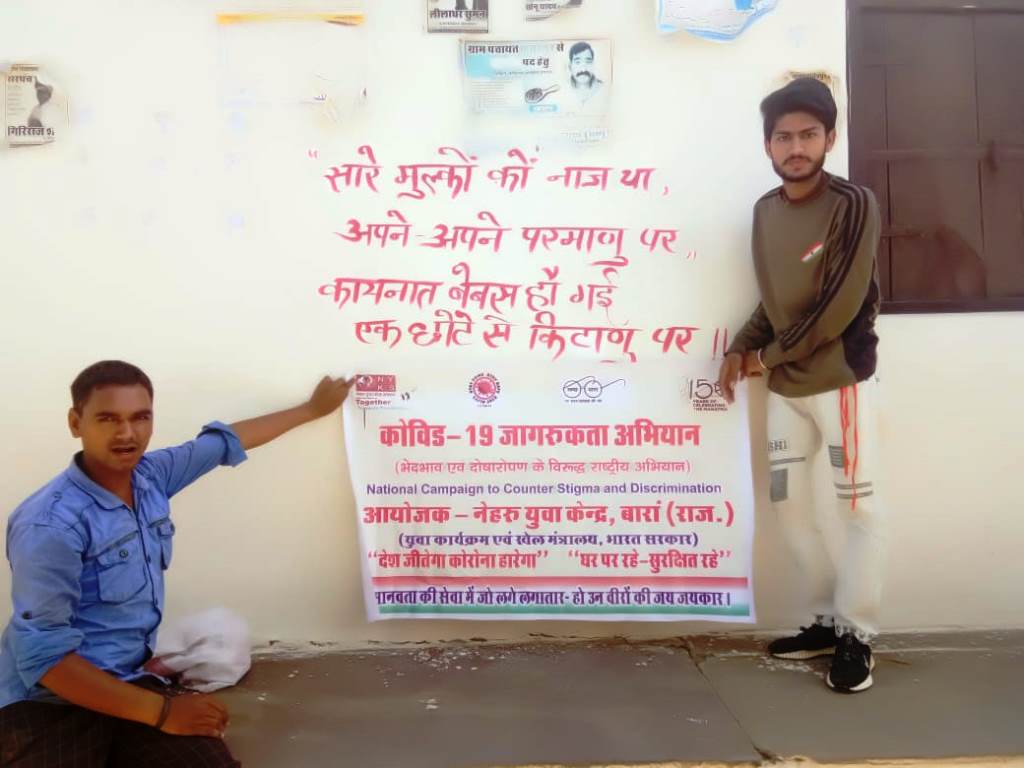 लीलाधर सुमन
सोनू यादव
ग्राम पंचायत से
पद हेतु
सरपंच
गिरिराज
“सारे मुल्कों कों नाज था,
अपने-अपने परमाणु पर,,
कायनात बेबस हौ गई
एक छोटे से किटाणु पर !!
NY
KS
Together
150
YEARS OF
CELEBRATING
THE MAHATMA
कोविड–19 जागरुकता अभियान
(भेदभाव एवं दोषारोपण के विरूद्ध राष्ट्रीय अभियान)
National Campaign to Counter Stigma and Discrimination
आयोजक – नेहरु युवा केन्द्र, बारां (राज.)
(युवा कार्यक्रम एवं खेल मंत्रालय, भारत सरकार)
“देश जीतेगा कोरोना हारेगा” “घर पर रहे–सुरक्षित रहे”
मानवता की सेवा में जो लगे लगातार- हो उन वीरों की जय जयकार।